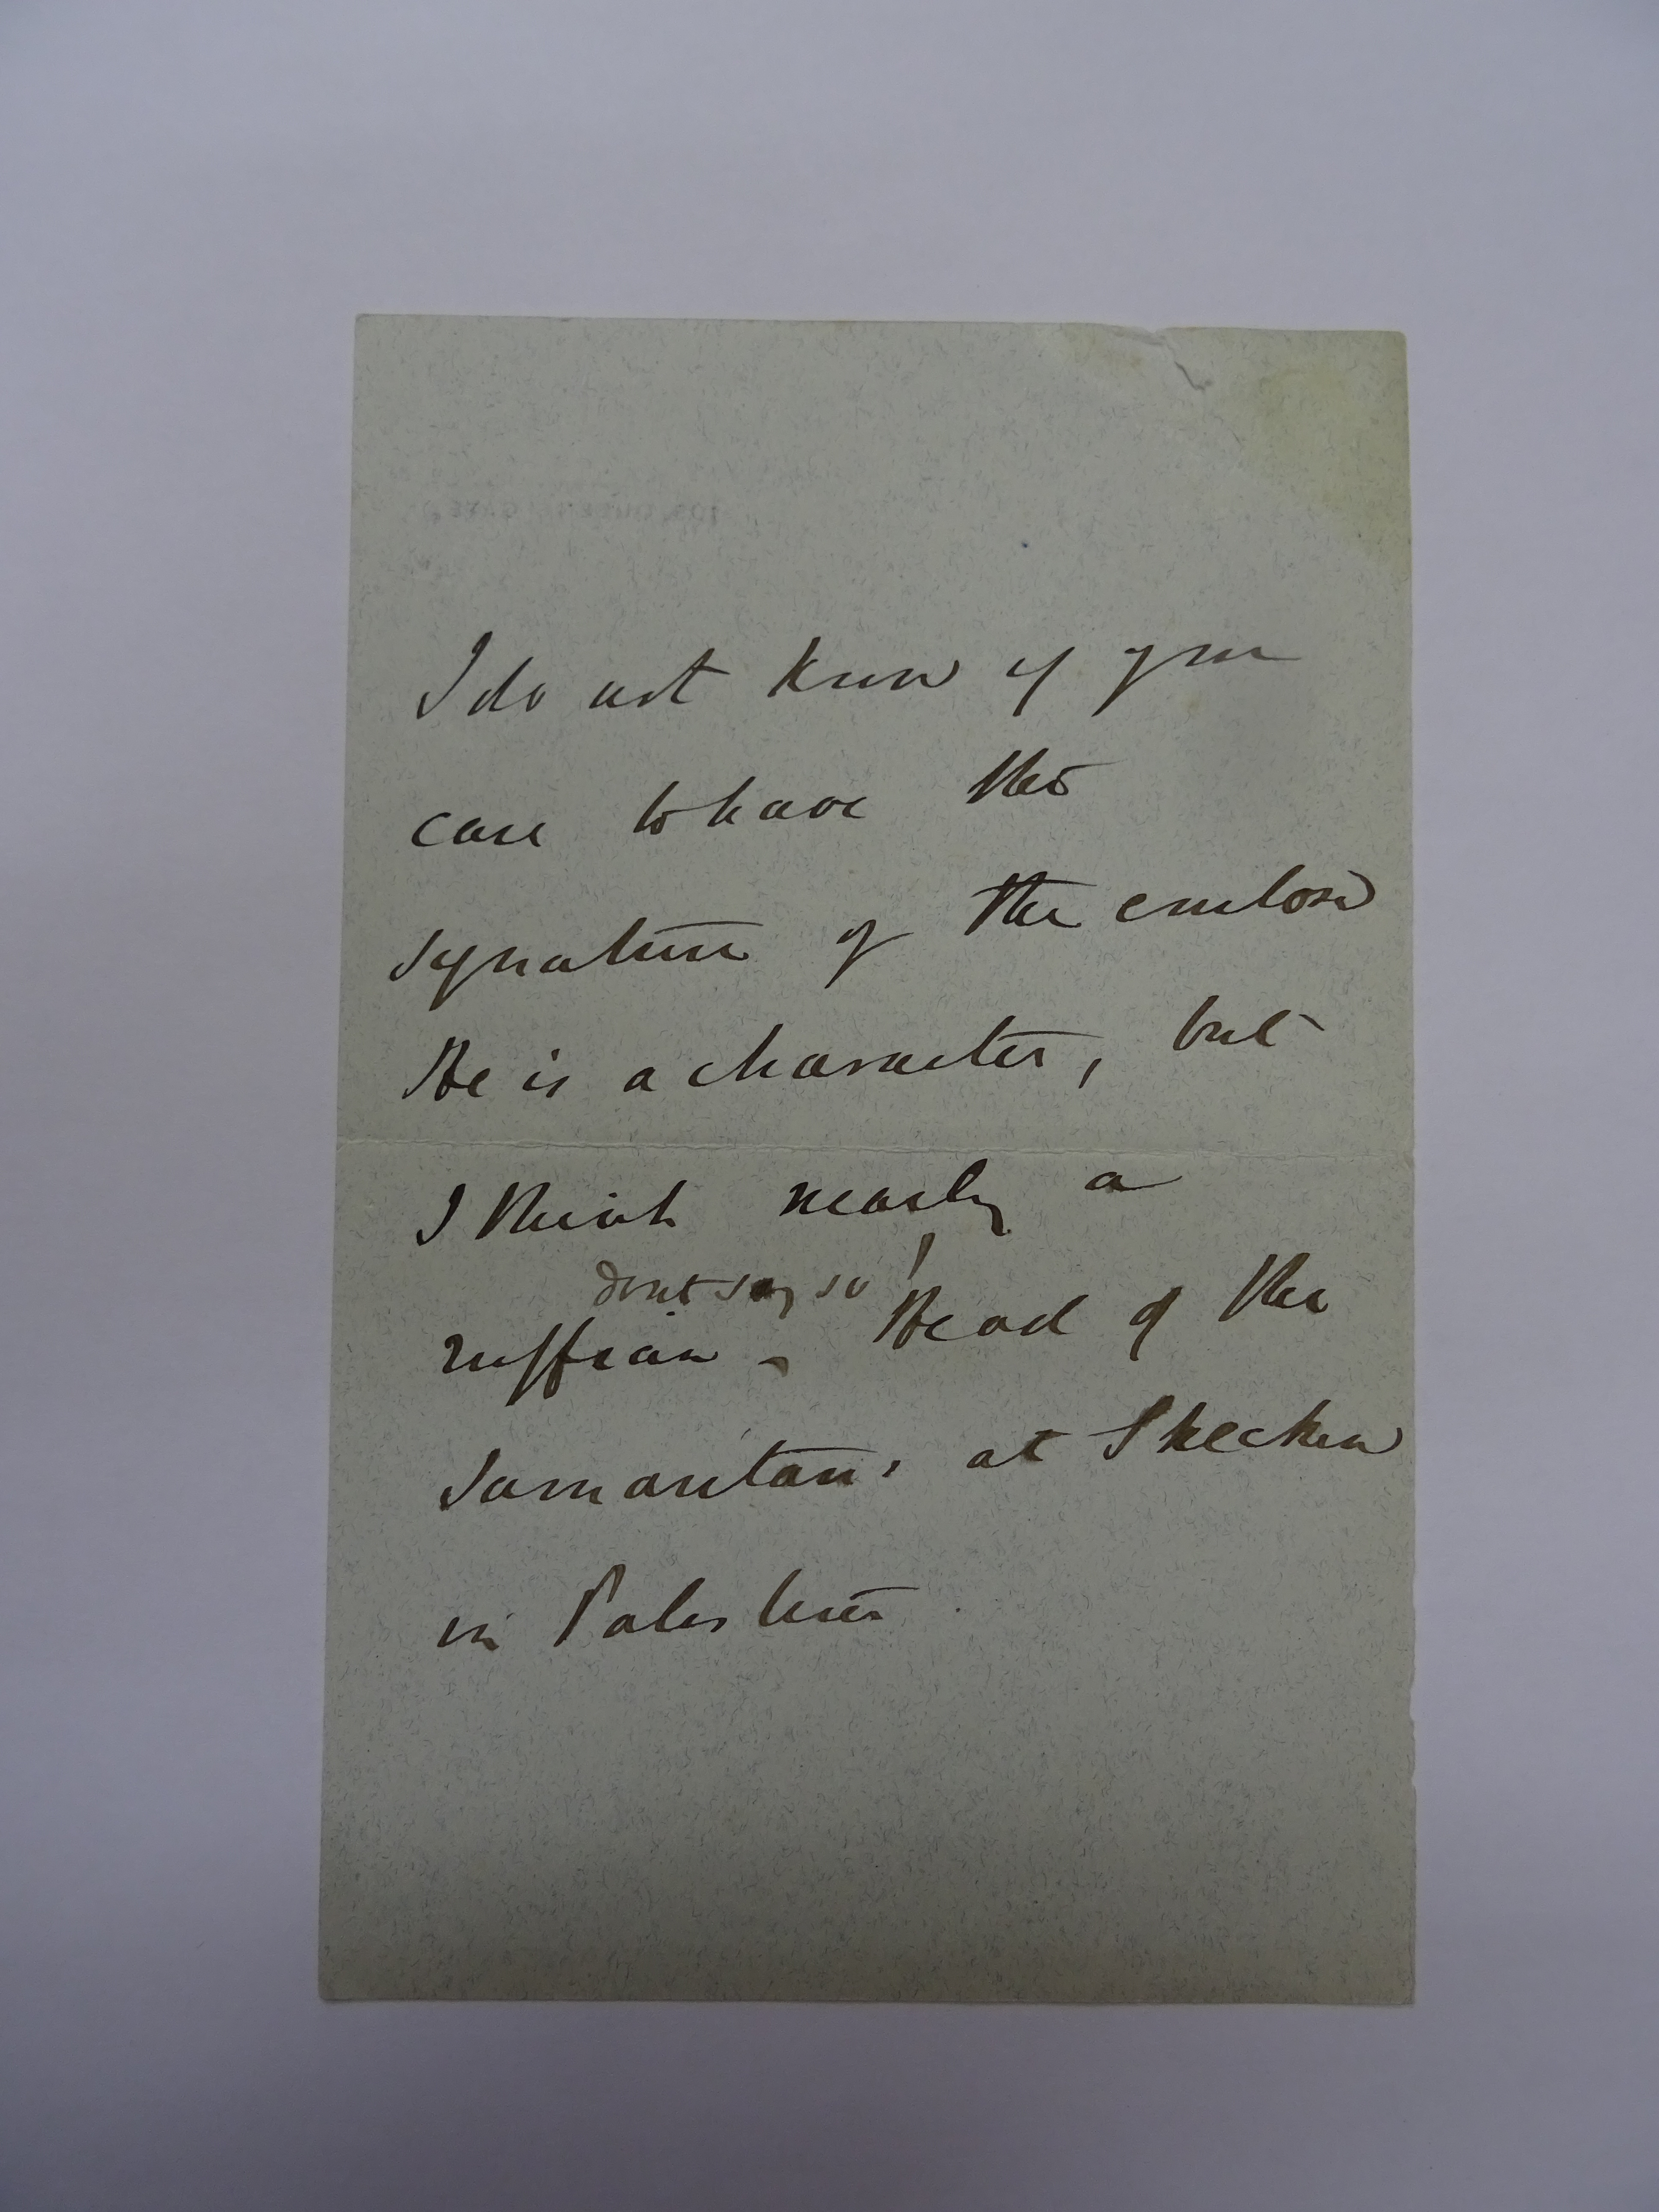 I do not know if you
care to have the
signature of the enclosed
He is a character, but
I think nearly a
dont say so!
ruffian - Head of the
Samaritans at Shechem
in Palestine